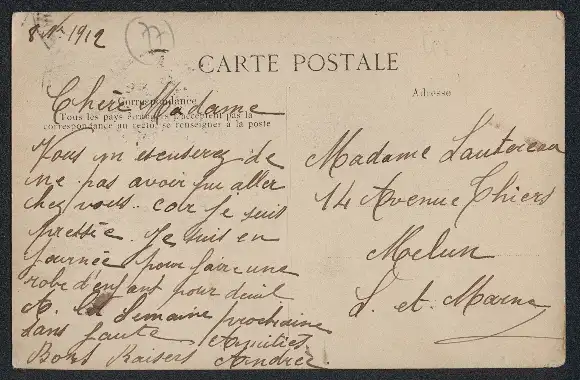 8 Nov 1912
77
CARTE POSTALE
Correspondance
Tous les pays étrangers n'acceptent pas la
correspondance au recto, se renseigner à la poste
Adresse
Chère Madame
Vous m'escuserez de
ne pas avoir pu aller
chez vous. car je suis
pressée. Je suis en
journée pour faire une
robe d'enfant pour deuil
A. la Semaine prochaine
sans faute Amitiés
Bons Baisers Andrée.
Madame Lautereau
14 Avenue Thiers
Melun
S. et. Marne